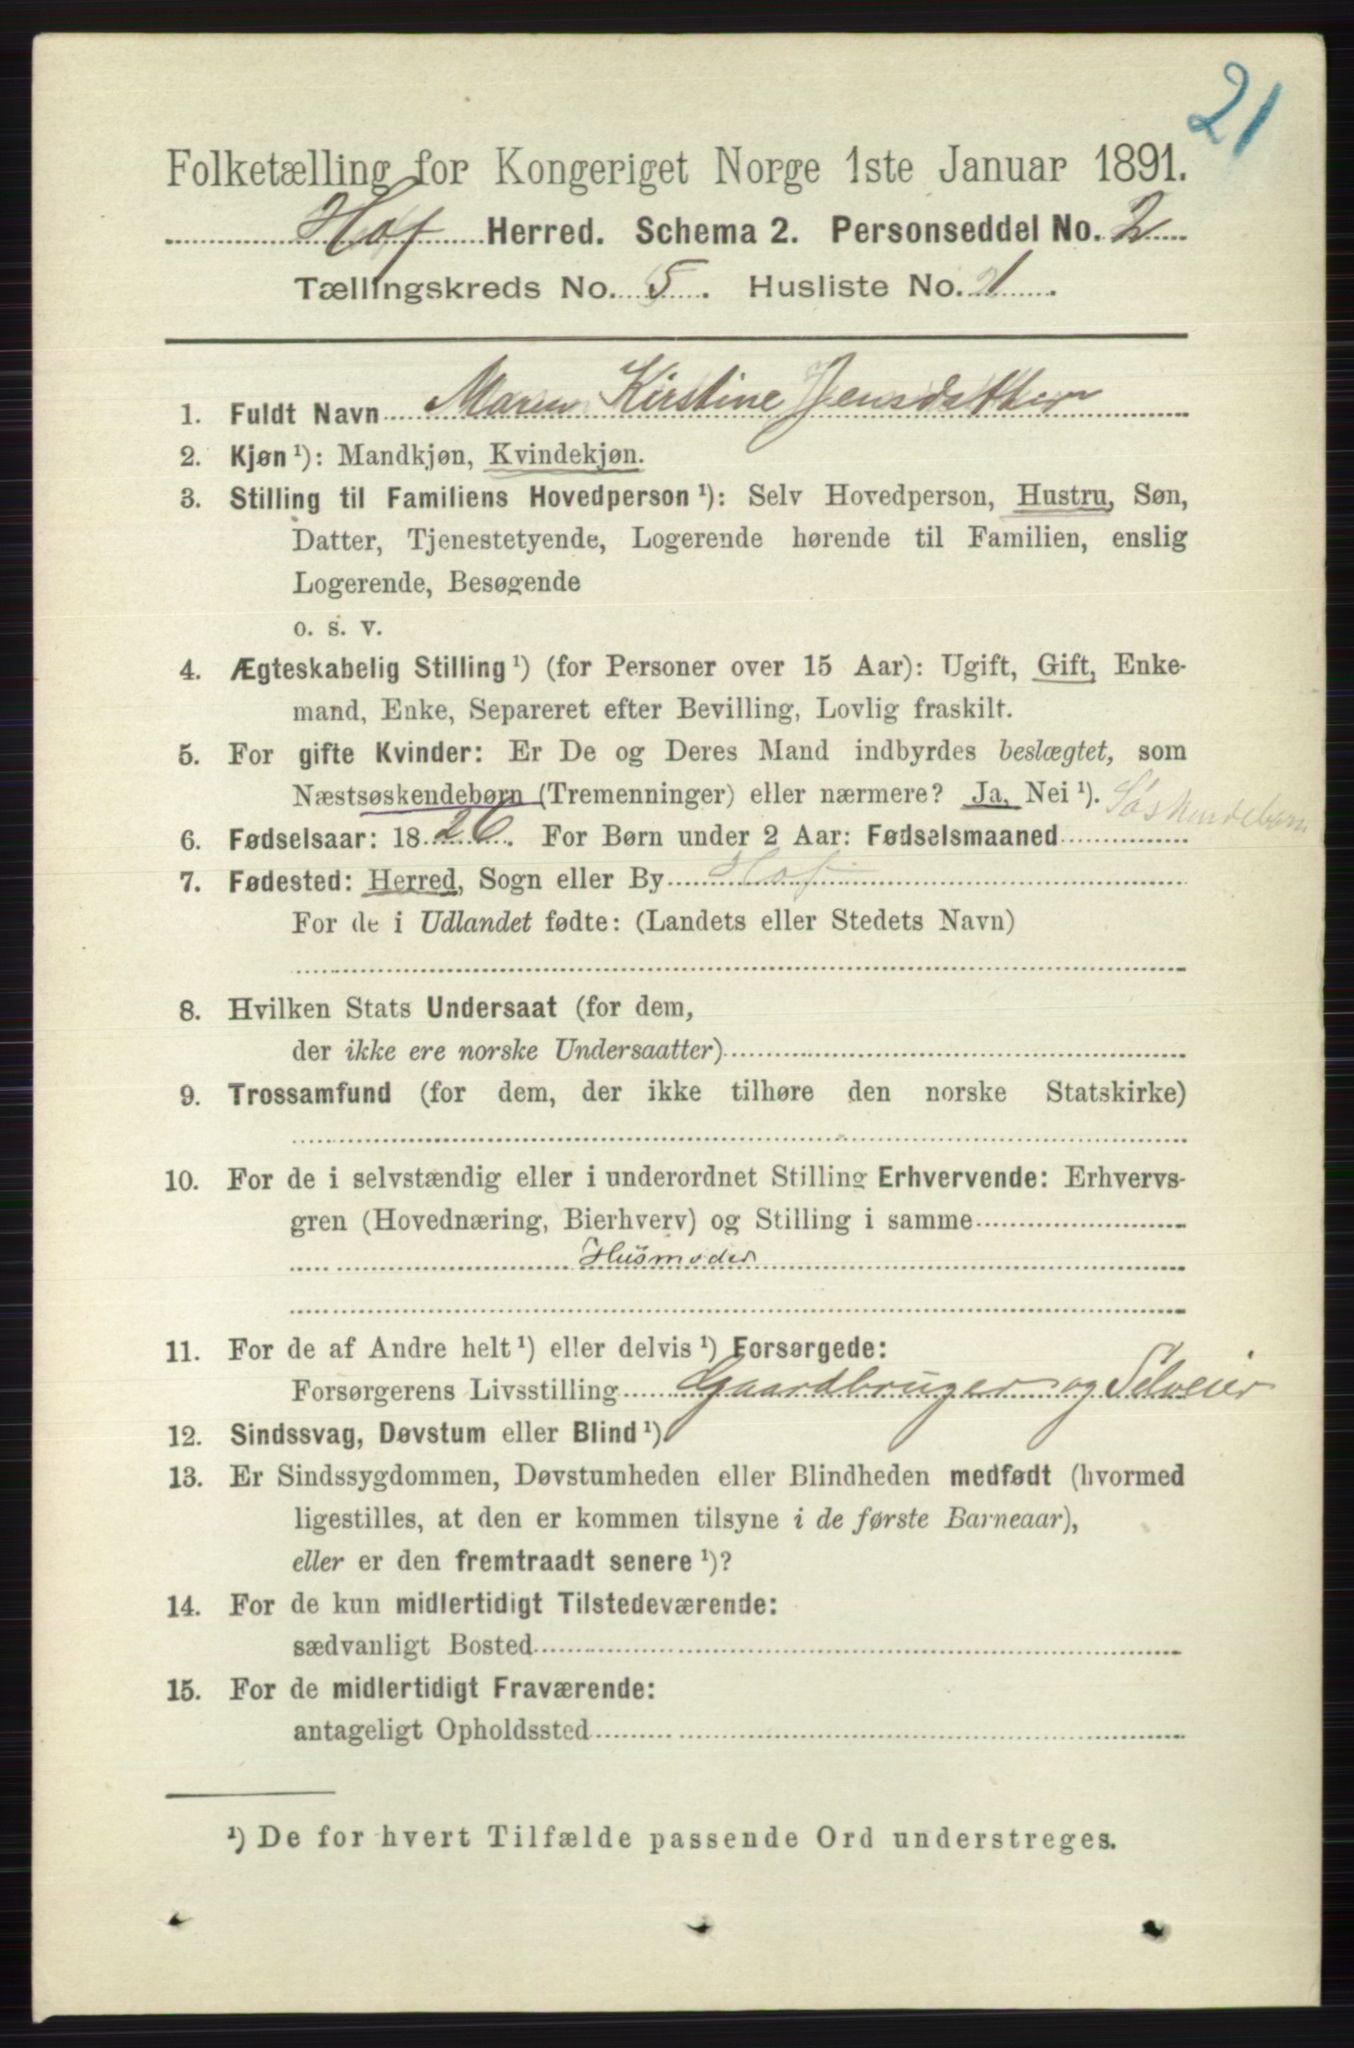 21
Folketælling for Kongeriget Norge 1ste Januar 1891.
Hof Herred. Schema 2. Personseddel No. 2
Tællingskreds No. 5. Husliste No. 1.
1. Fuldt Navn Maren Kirstine Jensdatter
2. Kjøn¹): Mandkjøn, Kvindekjøn.
3. Stilling til Familiens Hovedperson¹): Selv Hovedperson, Hustru, Søn,
Datter, Tjenestetyende, Logerende hørende til Familien, enslig
Logerende, Besøgende
o. s. v.
4. Ægteskabelig Stilling¹) (for Personer over 15 Aar): Ugift, Gift, Enke-
mand, Enke, Separeret efter Bevilling, Lovlig fraskilt.
5. For gifte Kvinder: Er De og Deres Mand indbyrdes beslægtet, som
Næstsøskendebørn (Tremenninger) eller nærmere? Ja, Nei¹). Søskendebørn
6. Fødselsaar: 1826. For Børn under 2 Aar: Fødselsmaaned
7. Fødested: Herred, Sogn eller By Hof
For de i Udlandet fødte: (Landets eller Stedets Navn)
8. Hvilken Stats Undersaat (for dem,
der ikke ere norske Undersaatter)
9. Trossamfund (for dem, der ikke tilhøre den norske Statskirke)
10. For de i selvstændig eller i underordnet Stilling Erhvervende: Erhvervs-
gren (Hovednæring, Bierhverv) og Stilling i samme
Husmoder
11. For de af Andre helt¹) eller delvis¹) Forsørgede:
Forsørgerens Livsstilling Gaardbruger og Selveier
12. Sindssvag, Døvstum eller Blind¹)
13. Er Sindssygdommen, Døvstumheden eller Blindheden medfødt (hvormed
ligestilles, at den er kommen tilsyne i de første Barneaar),
eller er den fremtraadt senere¹)?
14. For de kun midlertidigt Tilstedeværende:
sædvanligt Bosted
15. For de midlertidigt Fraværende:
antageligt Opholdssted
¹) De for hvert Tilfælde passende Ord understreges.